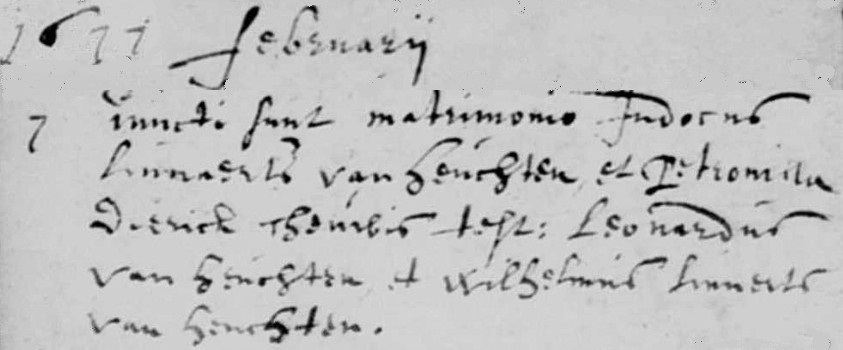 1677 februarij
7 iuncti sunt matrimonio Judocus
Linnaerts van heuchten et Petronilla
Dierick theuwis test: Leonardus
van heuchten et wilhelmus linnerts
van heuchten.